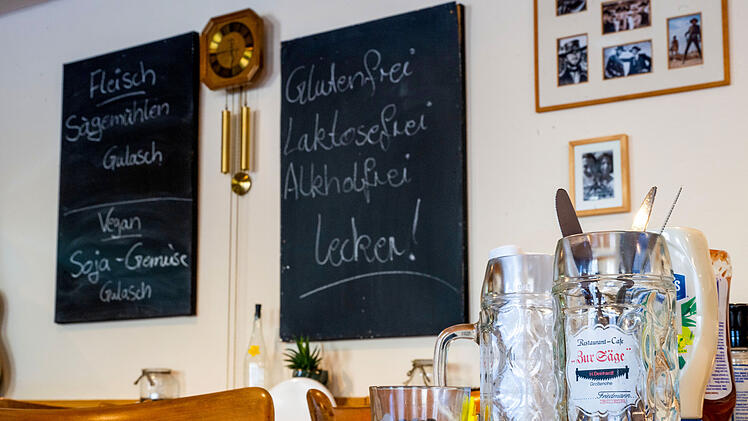 Fleisch
Sägemühlen
Gulasch
Vegan
Soja-Gemüse
Gulasch
Glutenfrei
Laktosefrei
Alkholfrei
Lecker!
Restaurant-Cafe
"Zur Säge"
H. Deinhardt
Friedmann